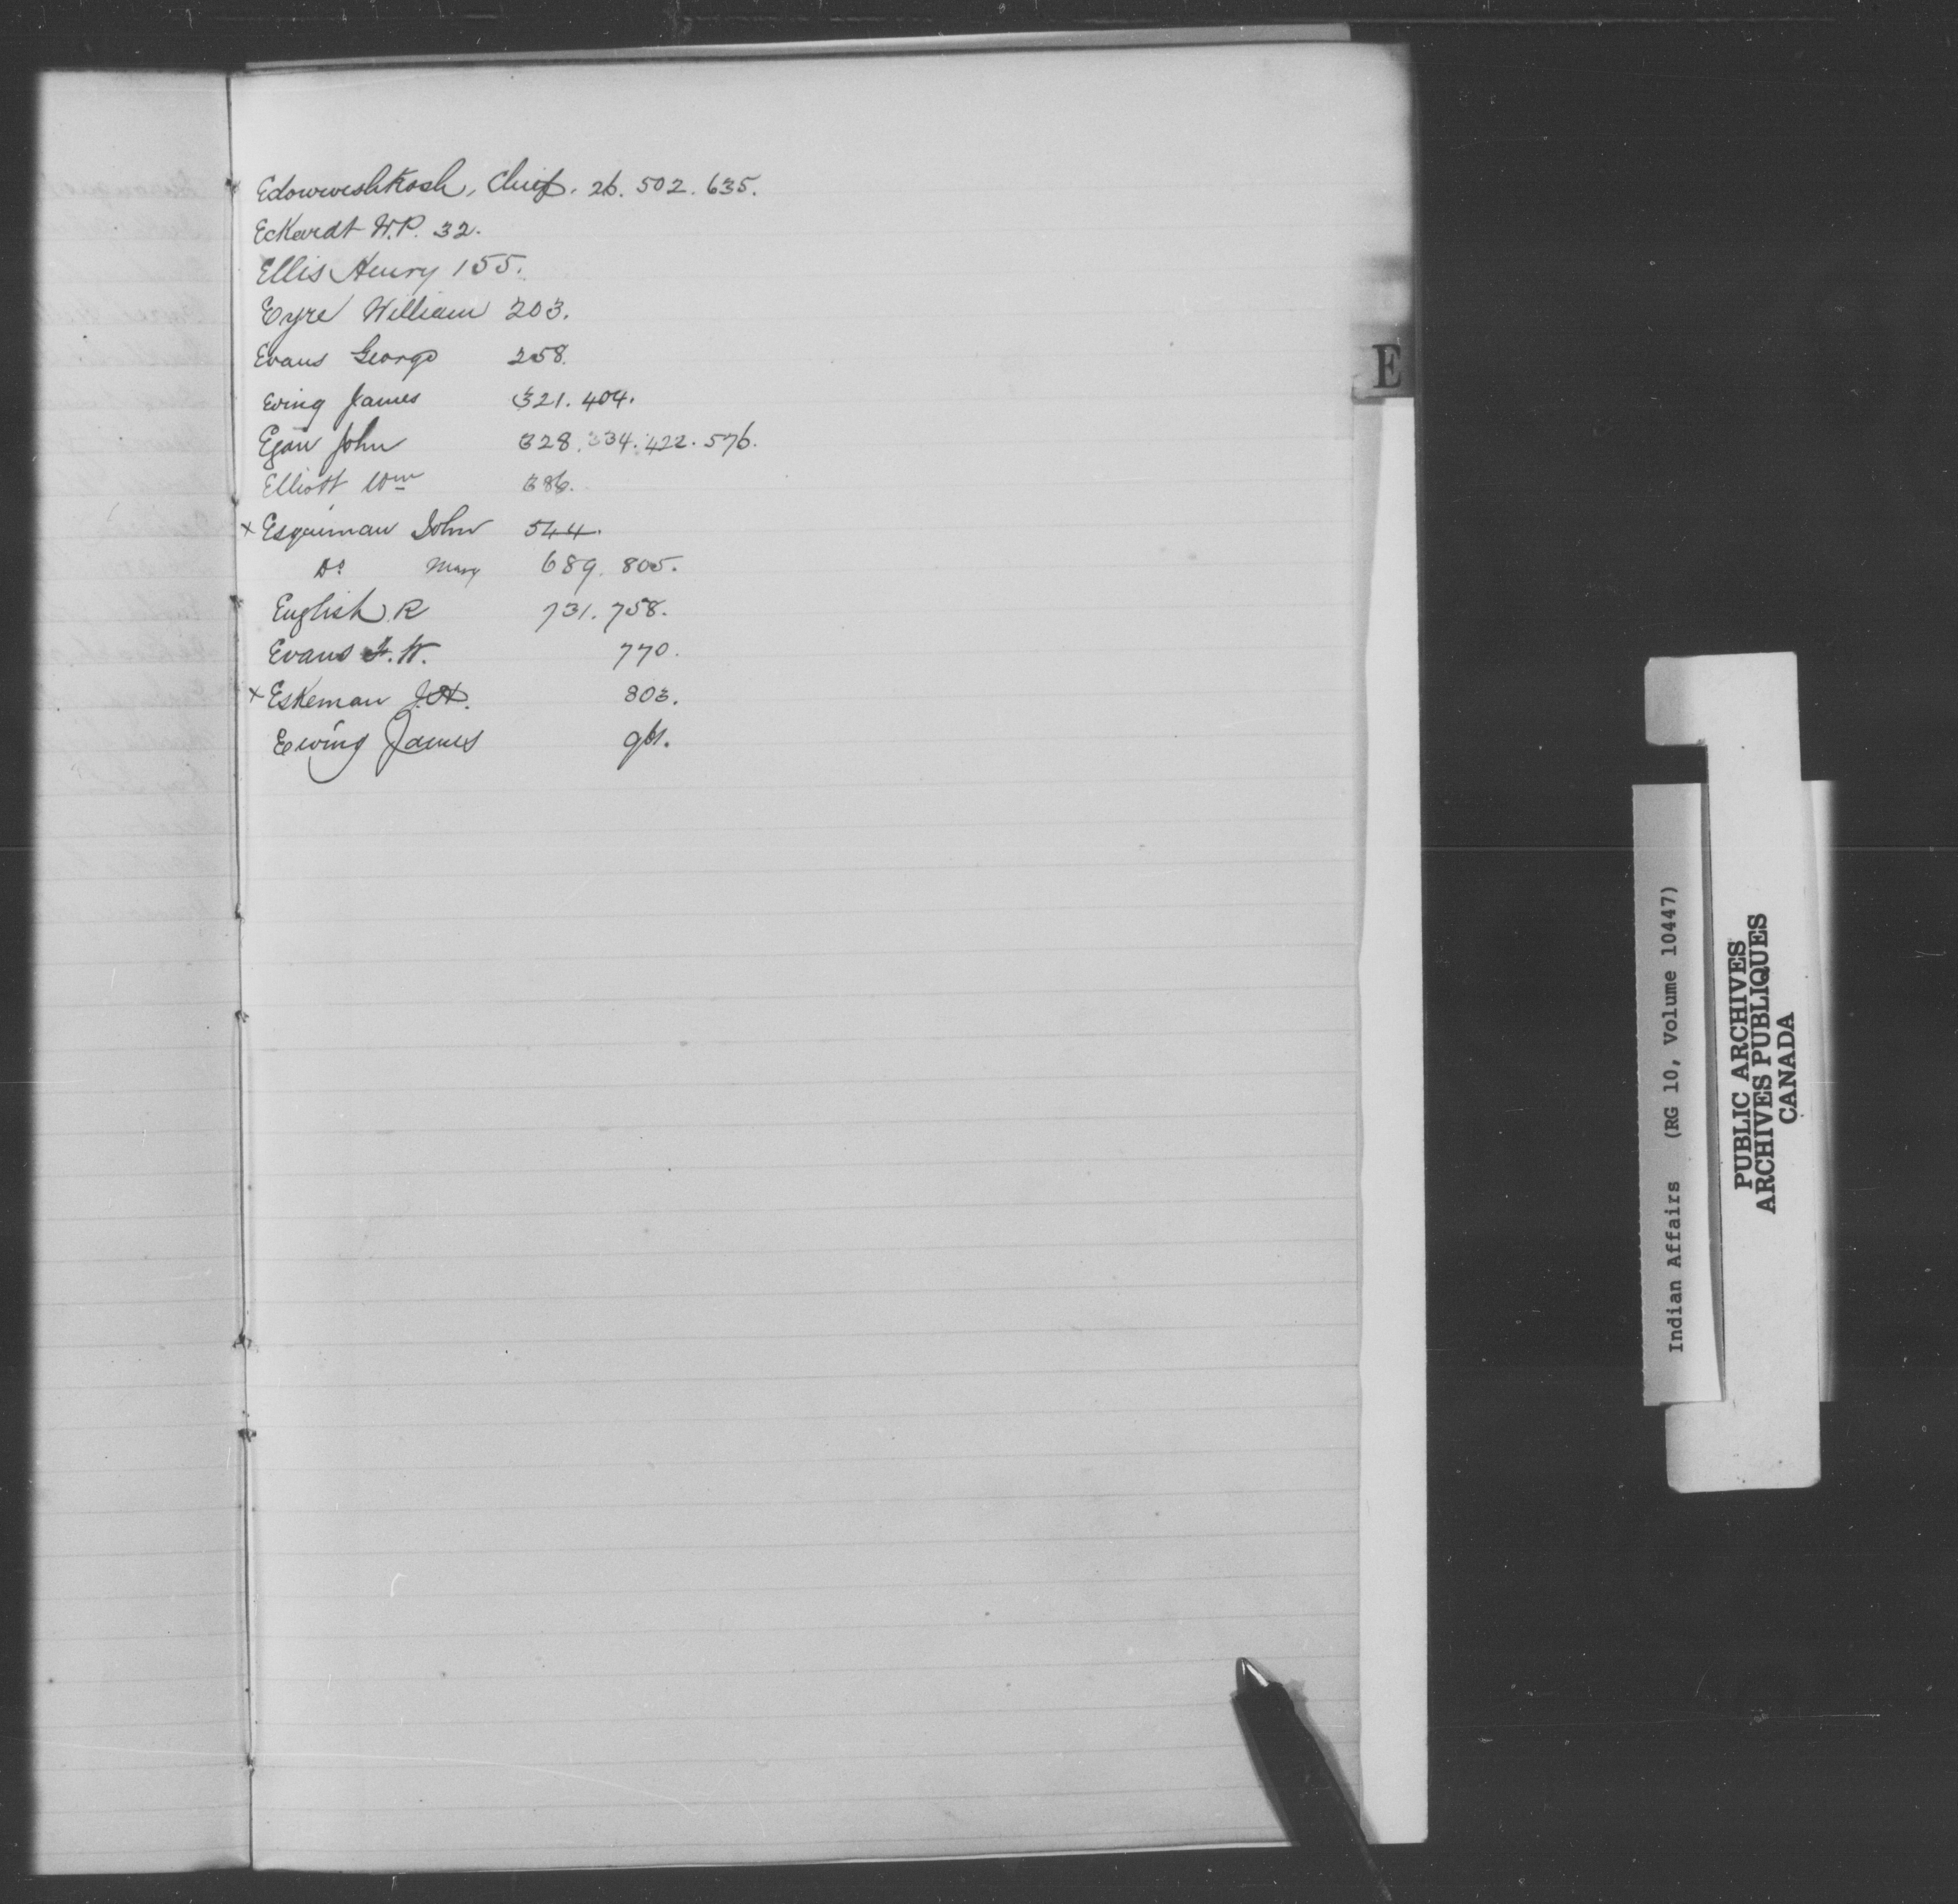 Edowweshkosh, Chief. 26. 502. 635.
Eckardt W.P. 32.
Ellis Henry 155.
Eyre William 203.
Evans George 258.
Ewing James 321. 404.
Egan John 328. 334. 422. 576.
Elliott Wm 386.
x Esquimau John 544.
Do Mary 689. 805.
English R 731. 758.
Evans W. 770.
x Eskeman 803.
Ewing James 961.
E
Indian Affairs (RG 10, Volume 10447)
PUBLIC ARCHIVES
ARCHIVES PUBLIQUES
CANADA